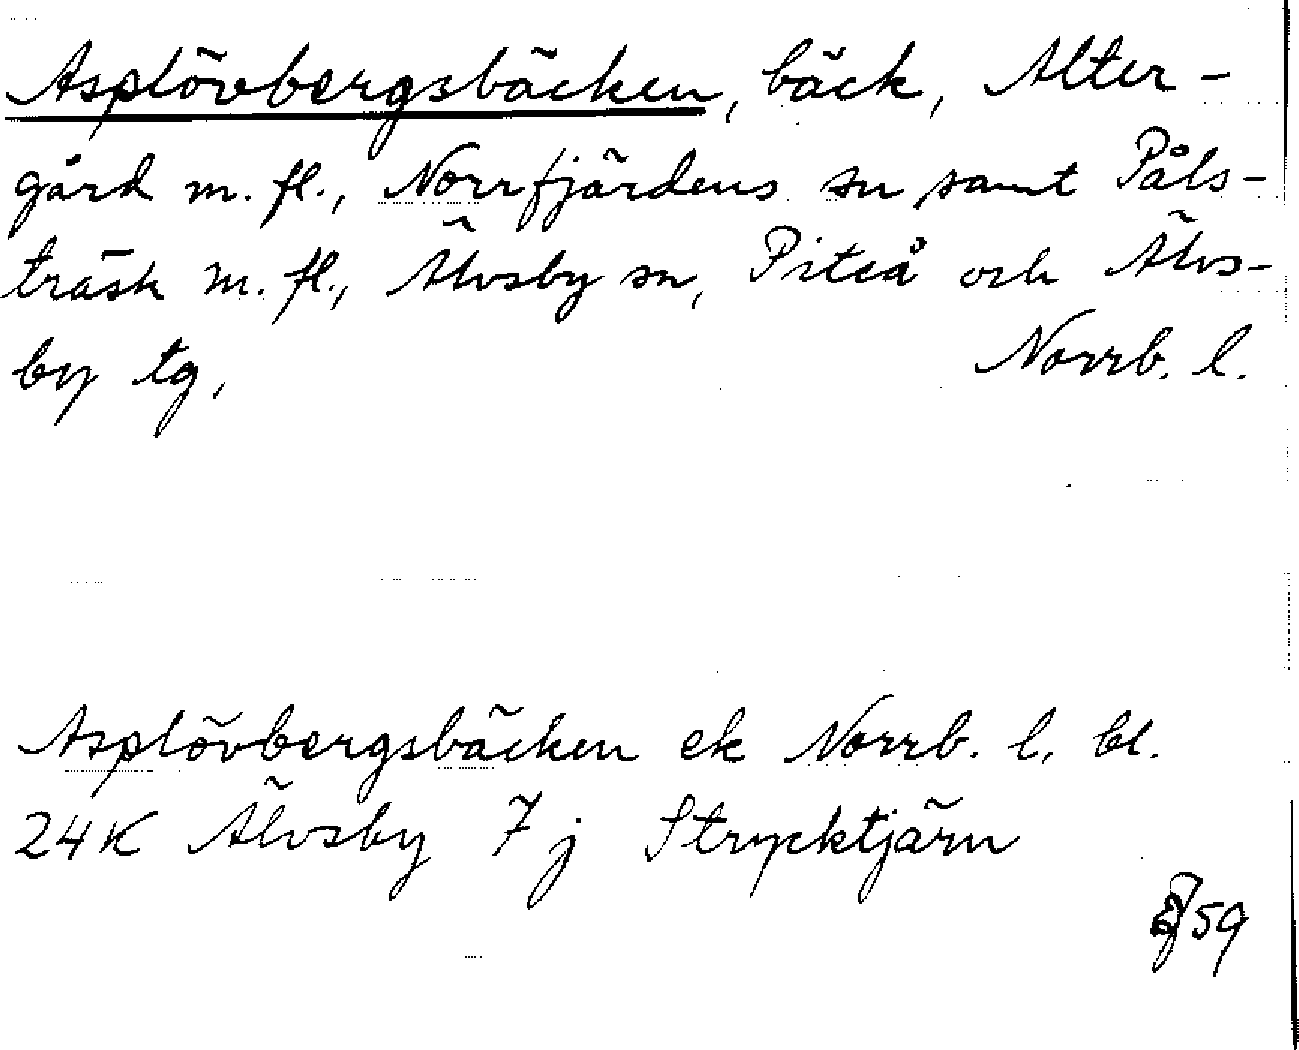 Asplövbergsbäcken, bäck, Alter-
gård m. fl., Norrfjärdens sn samt Påls-
träsk m. fl., Älvsby sn, Piteå och Älvs-
by tg,
Norrb. l.
Asplövbergsbäcken ek Norrb. l. bl.
24K Älvsby 7j Strycktjärn
59